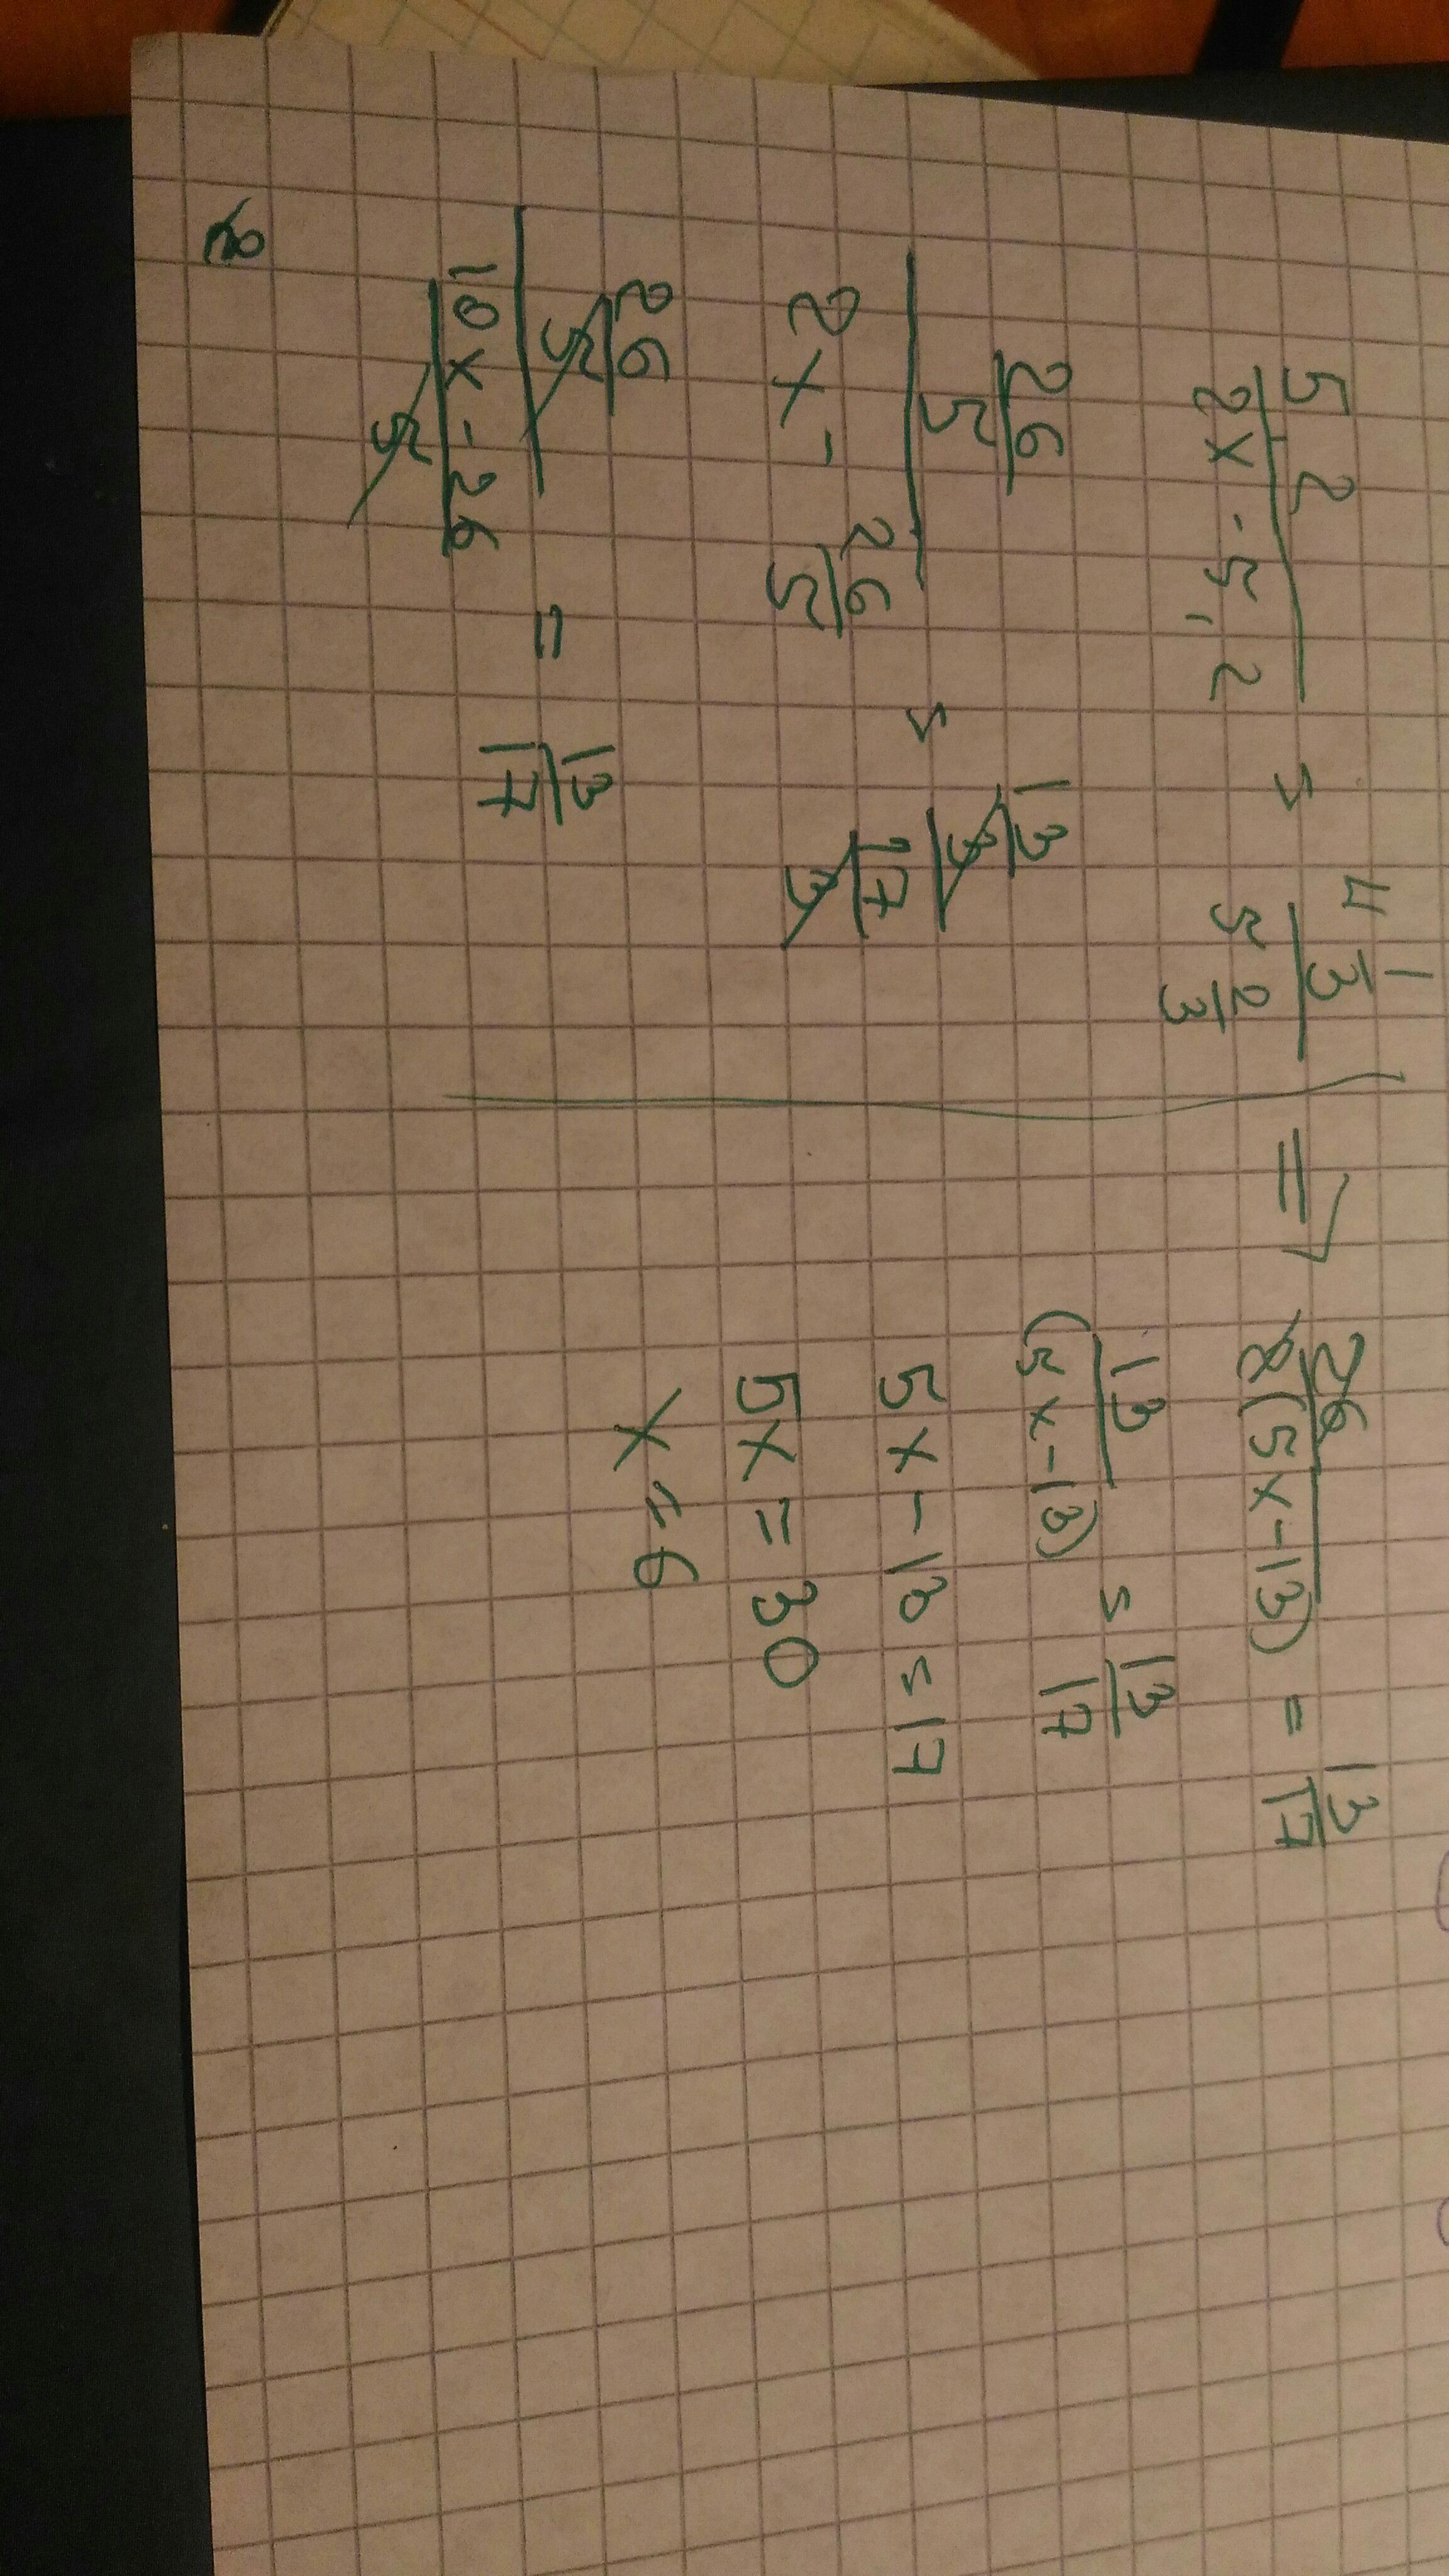 5,2 / 2x - 5,2 = 4 1/3 / 5 2/3
26/5 / 2x - 26/5 = 13/3 / 17/3
26/5 / 10x - 26/5 = 13/17
=> 26 / 2(5x - 13) = 13/17
13 / (5x - 13) = 13/17
5x - 13 = 17
5x = 30
x = 6